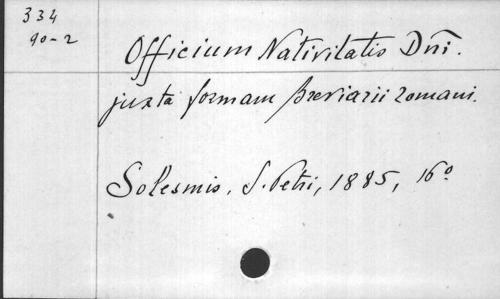 334
90-2
Officium Nativitatis Dn̄i.
juxta formam Breviarii romani.
Solesmis, S. Petri, 1885, 16º